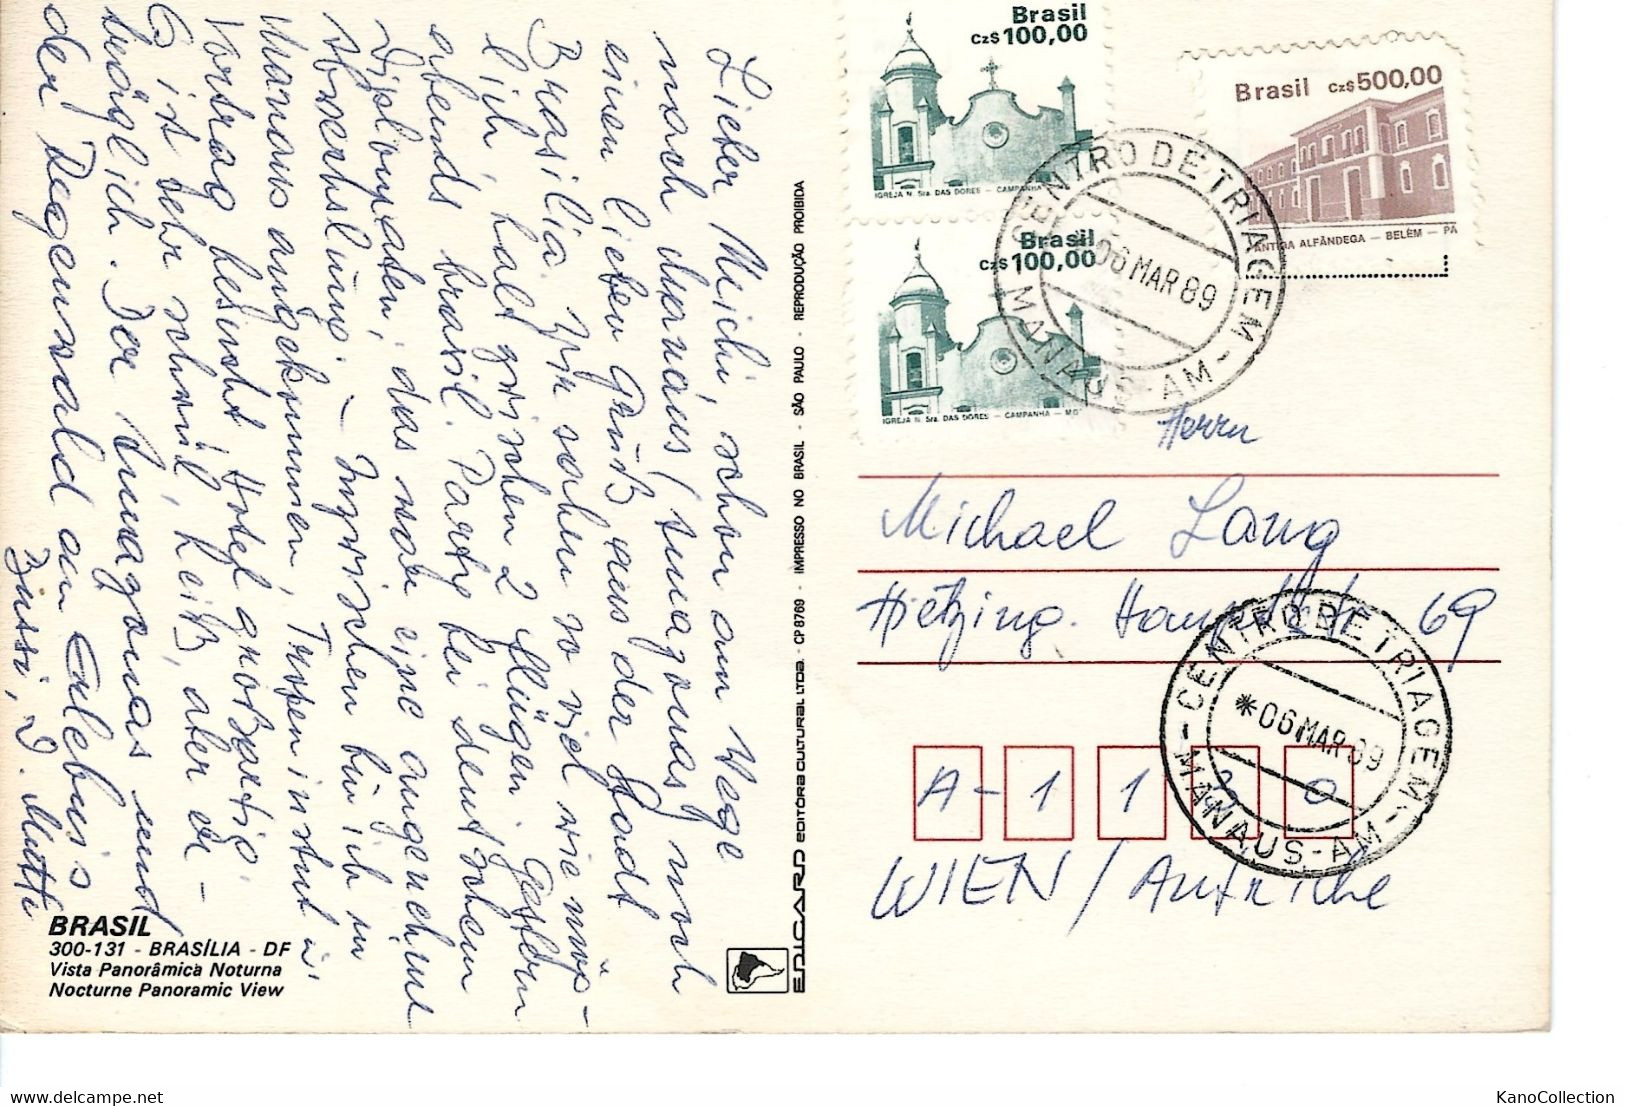 Lieber Michi, schon am Wege
nach Manaus/Amazonas noch
einen lieben Gruß aus der Stadt
Brasilia. Wir sahen so viel wie mög-
lich, halt zwischen 2 Flügen. Gestern
abends brasil. Party bei deutschem
Diplomaten, das war eine angenehme
Abwechslung. – Inzwischen bin ich in
Manaus angekommen, Tropeninstitut u.
Vortrag besucht, Hotel großartig.
Es ist sehr schwül, heiß, aber er-
träglich. Der Amazonas und
der Regenwald ein Erlebnis
Bussi, D. Mutti
BRASIL
300-131 - BRASÍLIA - DF
Vista Panorâmica Noturna
Nocturne Panoramic View
EDICARD EDITORA CULTURAL LTDA. · CP 8769 · IMPRESSO NO BRASIL · SÃO PAULO · REPRODUÇÃO PROIBIDA
Brasil
Cz$ 100,00
IGREJA N. Sra. DAS DORES — CAMPANHA
Brasil
Cz$ 100,00
IGREJA N. Sra. DAS DORES — CAMPANHA — MG
Brasil Cz$ 500,00
ANTIGA ALFÂNDEGA — BELÉM — PA
CENTRO DE TRIAGEM -
06 MAR 89
MANAUS-AM
Herrn
Michael Lang
Hietzing. Hauptstr. 69
CENTRO DE TRIAGEM -
* 06 MAR 89
MANAUS-AM
A-1130
WIEN / Autriche
KanoCollection